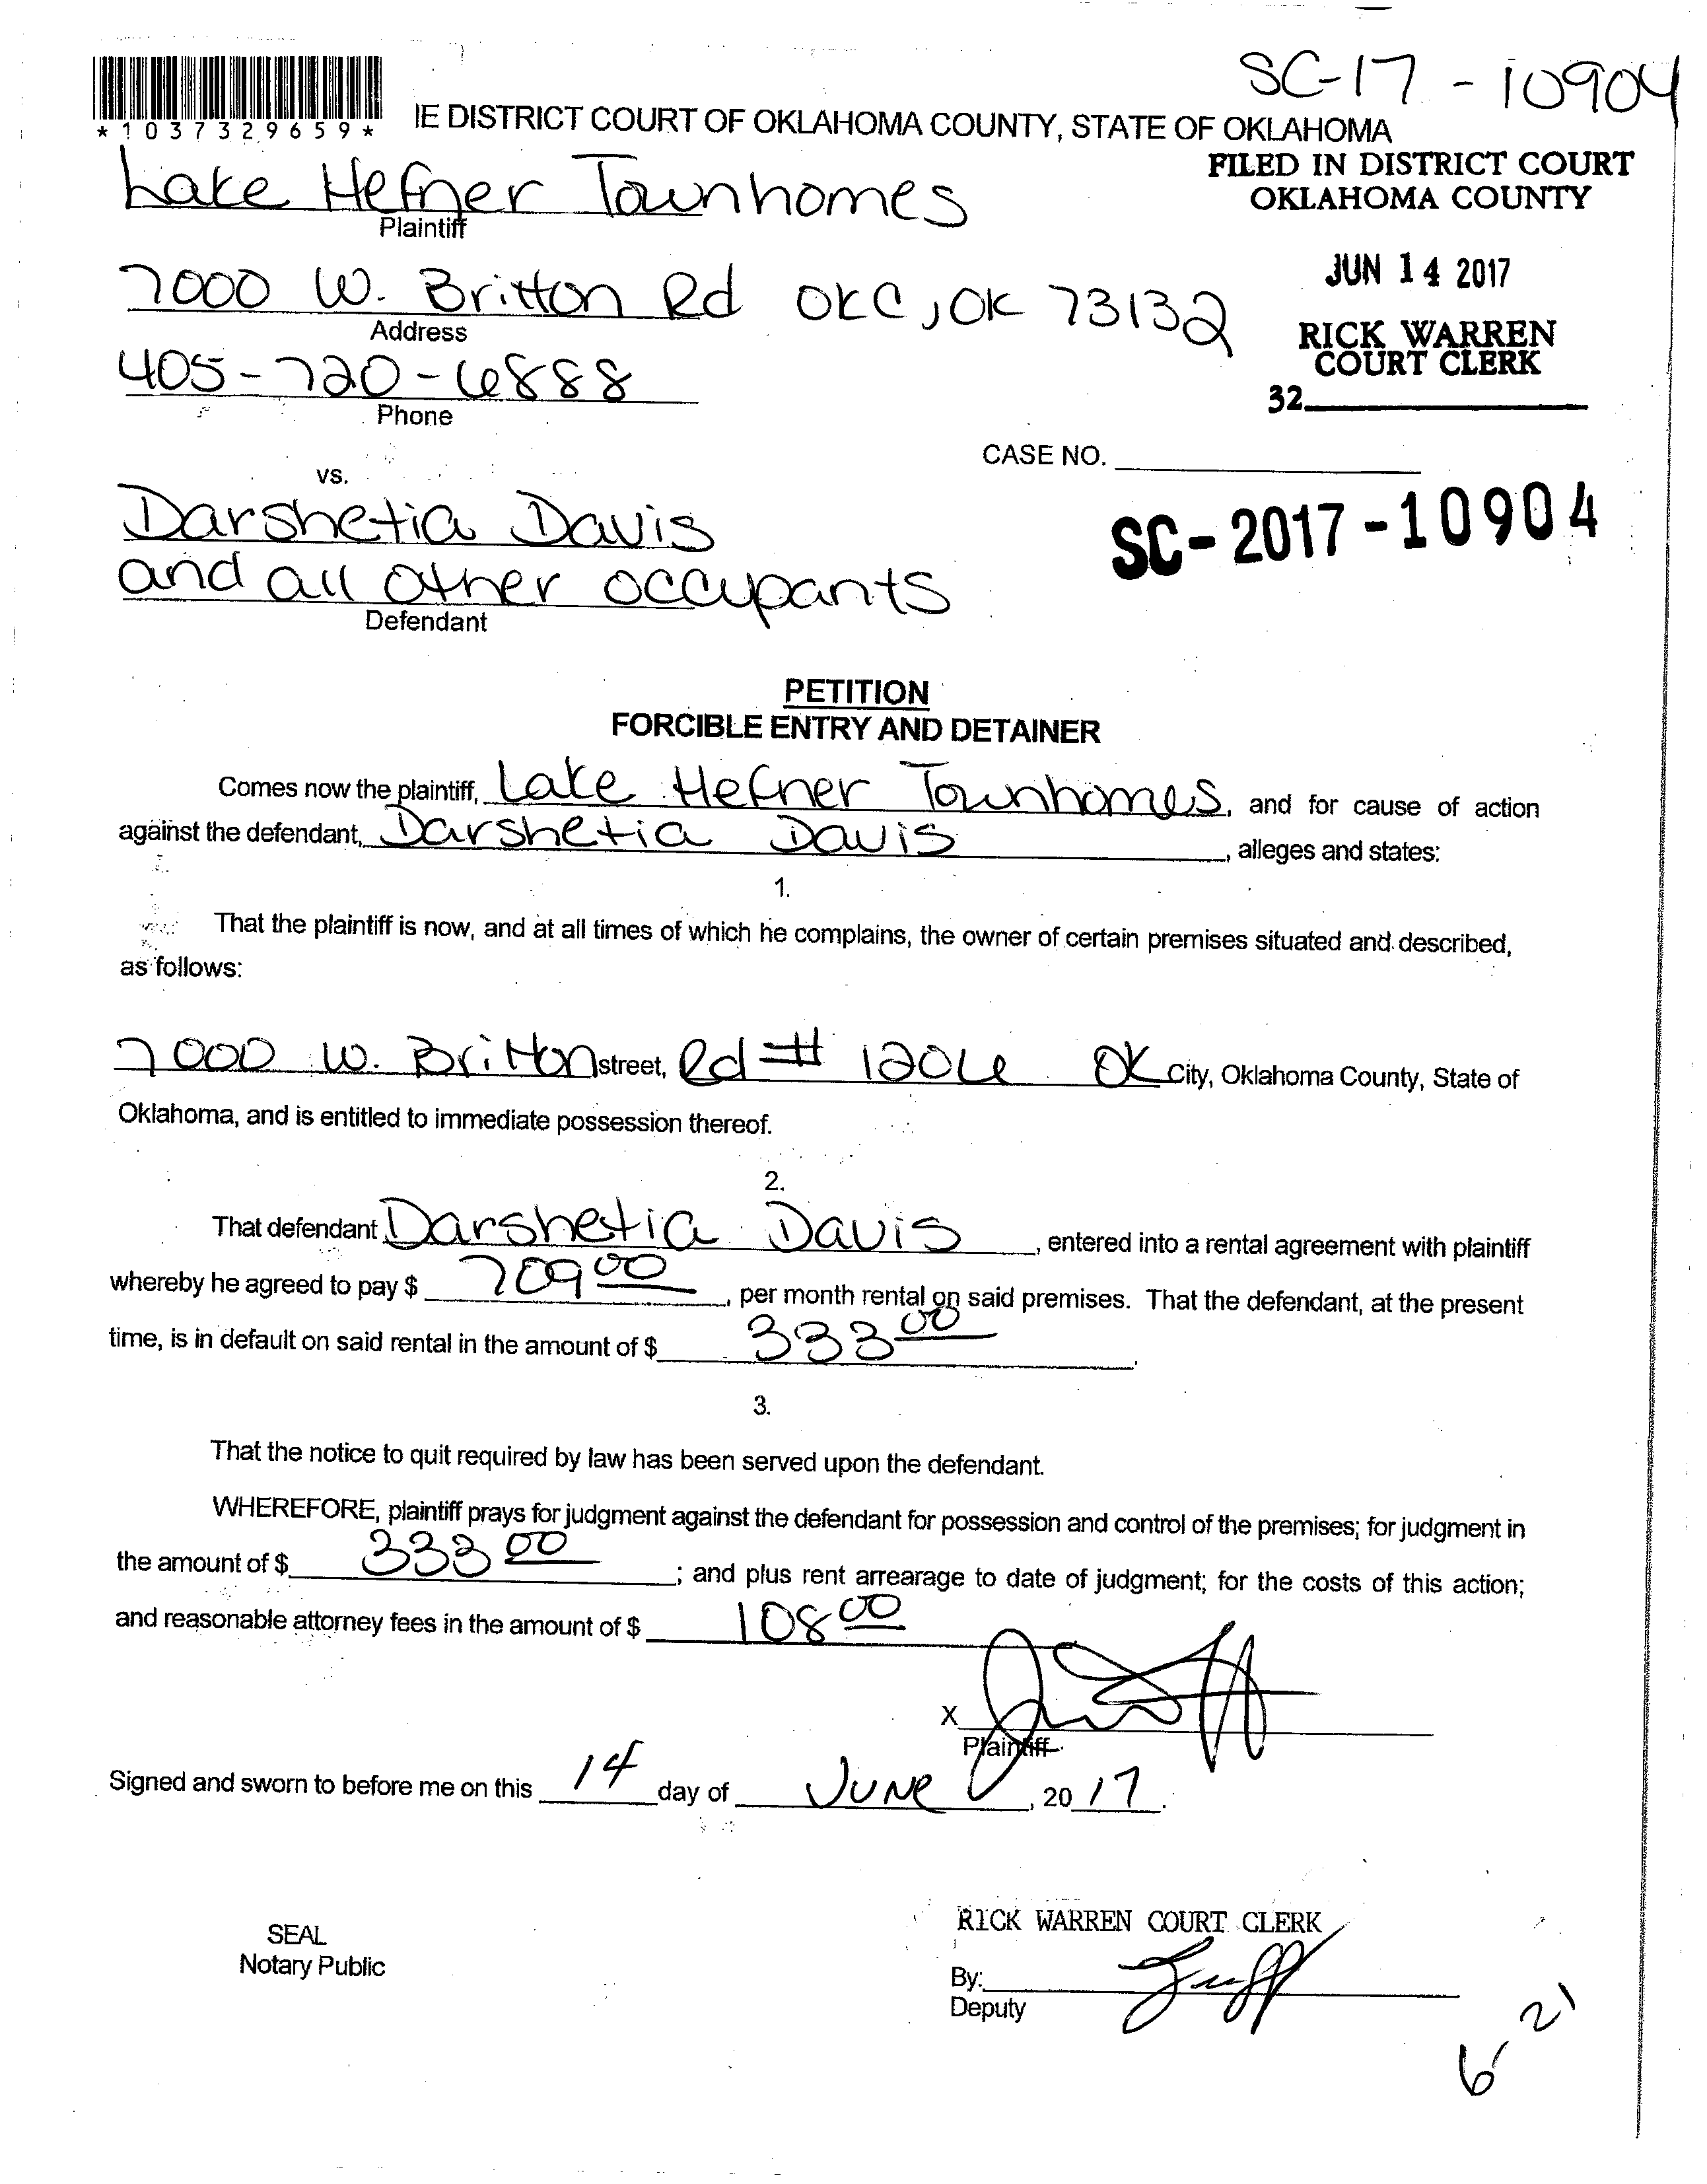 SC-17-10904
*1037329659*
IE DISTRICT COURT OF OKLAHOMA COUNTY, STATE OF OKLAHOMA
FILED IN DISTRICT COURT
OKLAHOMA COUNTY
Lake Hefner Townhomes
Plaintiff
JUN 14 2017
7000 W. Britton Rd OKC, OK 73132
Address
RICK WARREN
COURT CLERK
405-720-6888
Phone
32
CASE NO.
vs.
SC-2017-10904
Darshetia Davis
and all other occupants
Defendant
PETITION
FORCIBLE ENTRY AND DETAINER
Comes now the plaintiff, Lake Hefner Townhomes, and for cause of action
against the defendant, Darshetia Davis, alleges and states:
1.
That the plaintiff is now, and at all times of which he complains, the owner of certain premises situated and described,
as follows:
7000 W. Britton street, Rd # 1206 OK City, Oklahoma County, State of
Oklahoma, and is entitled to immediate possession thereof.
2.
That defendant Darshetia Davis, entered into a rental agreement with plaintiff
whereby he agreed to pay $ 709 00, per month rental on said premises. That the defendant, at the present
time, is in default on said rental in the amount of $ 333 00.
3.
That the notice to quit required by law has been served upon the defendant.
WHEREFORE, plaintiff prays for judgment against the defendant for possession and control of the premises; for judgment in
the amount of $ 333 00; and plus rent arrearage to date of judgment; for the costs of this action;
and reasonable attorney fees in the amount of $ 108 00
X
Plaintiff
Signed and sworn to before me on this 14 day of JUNE, 20 17.
RICK WARREN COURT CLERK
SEAL
Notary Public
By:
Deputy
6-21